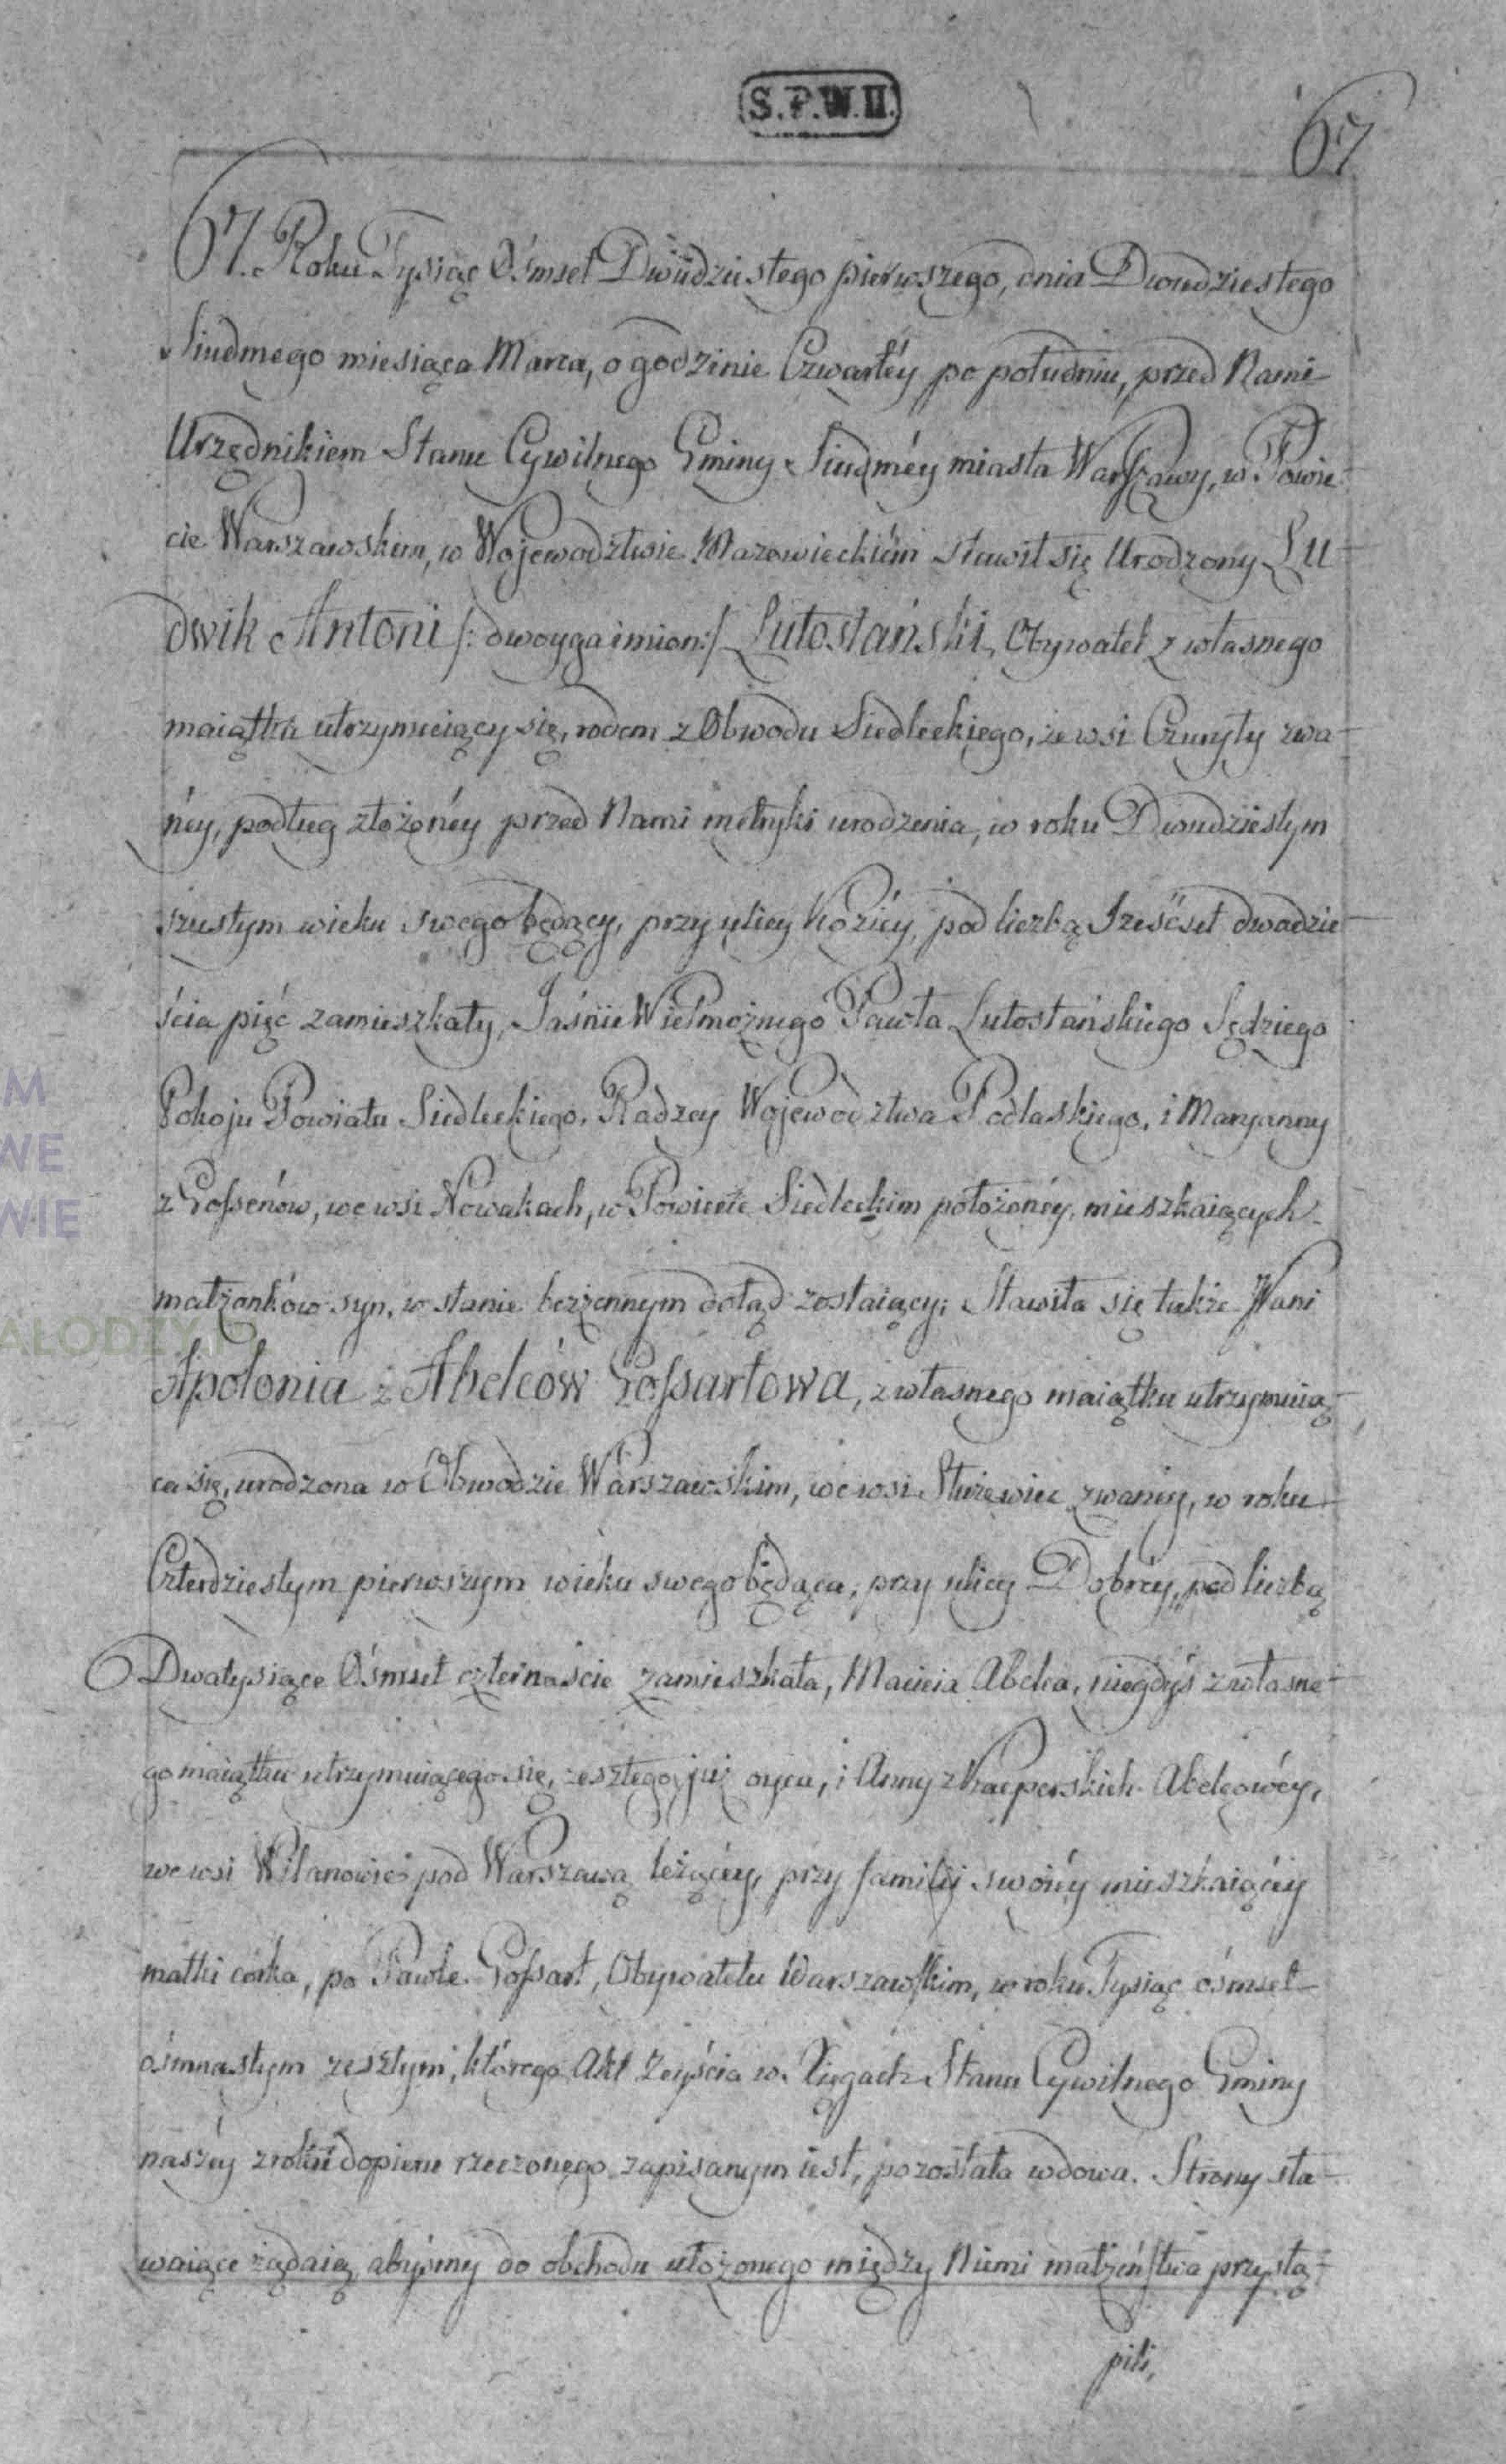 S.P.W.II.
67
67. Roku Tysiąc Ośmset Dwudziestego pierwszego, dnia Dwudziestego
Siudmego miesiąca Marca, o godzinie Czwartéy po południu, przed Nami
Urzędnikiem Stanu Cywilnego Gminy Siudméy miasta Warszawy, w Powie-
cie Warszawskim, w Wojewodztwie Mazowieckiém stawił się Urodzony Lu-
dwik Antoni /: dwoyga imion :/ Lutostański, Obywatel z własnego
maiątku utrzymuiący się, rodem z Obwodu Siedleckiego, ze wsi Czuryły zwa-
néy, podług złożonéy przed Nami metryki urodzenia, w roku Dwudziestym
szustym wieku swego będący, przy ulicy Koziéy, pod liczbą Sześćset dwadzie-
ścia pięć zamieszkały, Jaśnie Wielmożnego Pawła Lutostańskiego Sędziego
Pokoju Powiatu Siedleckiego, Radzcy Wojewodztwa Podlaskiego, i Maryanny
z Gossenów, we wsi Nowakach, w Powiecie Siedleckim położonéy, mieszkaiących
małżonków syn, w stanie bezżennym dotąd zostaiący; Stawiła się także Pani
Apolonia z Abelców Gossartowa, z własnego maiątku utrzymuią-
ca się, urodzona w Obwodzie Warszawskim, we wsi Służewiec zwanéy, w roku
Czterdziestym pierwszym wieku swego będąca, przy ulicy Dobréy, pod liczbą
Dwatysiące Ośmset czternaście zamieszkała, Macieia Abelca, niegdyś z własne-
go maiątku utrzymuiącego się, zeszłego już oyca, i Anny z Kacperskich Abelcowéy,
we wsi Wilanowie pod Warszawą leżącéy, przy familij swoiéy mieszkaiącéy
matki córka, po Pawle Gossart, Obywatelu Warszawskim, w roku Tysiąc ośmset
ośmnastym zeszłym, którego Akt Zeyścia w Xięgach Stanu Cywilnego Gminy
naszéy z roku dopiero rzeczonego zapisanym iest, pozostała wdowa. Strony sta-
waiące żądaią, abyśmy do obchodu ułożonego między Niemi małżeństwa przystą-
pili,